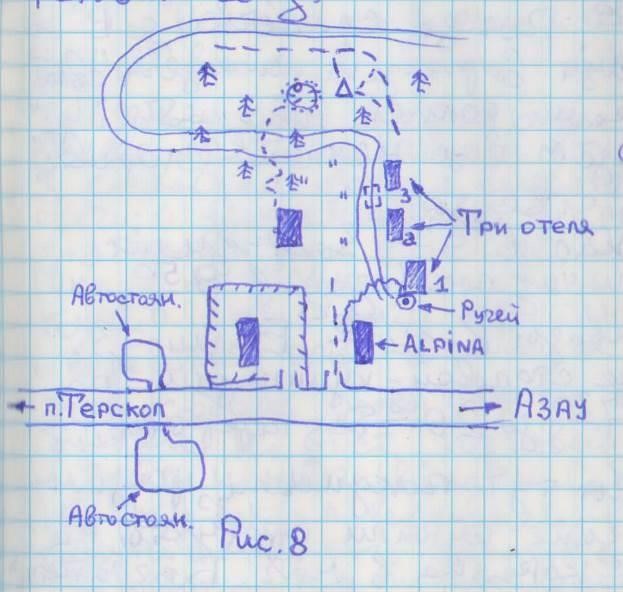 3
2
Три отеля
1
Автостоян.
Ручей
ALPINA
п.Терскол
АЗАУ
Автостоян.
Рис. 8